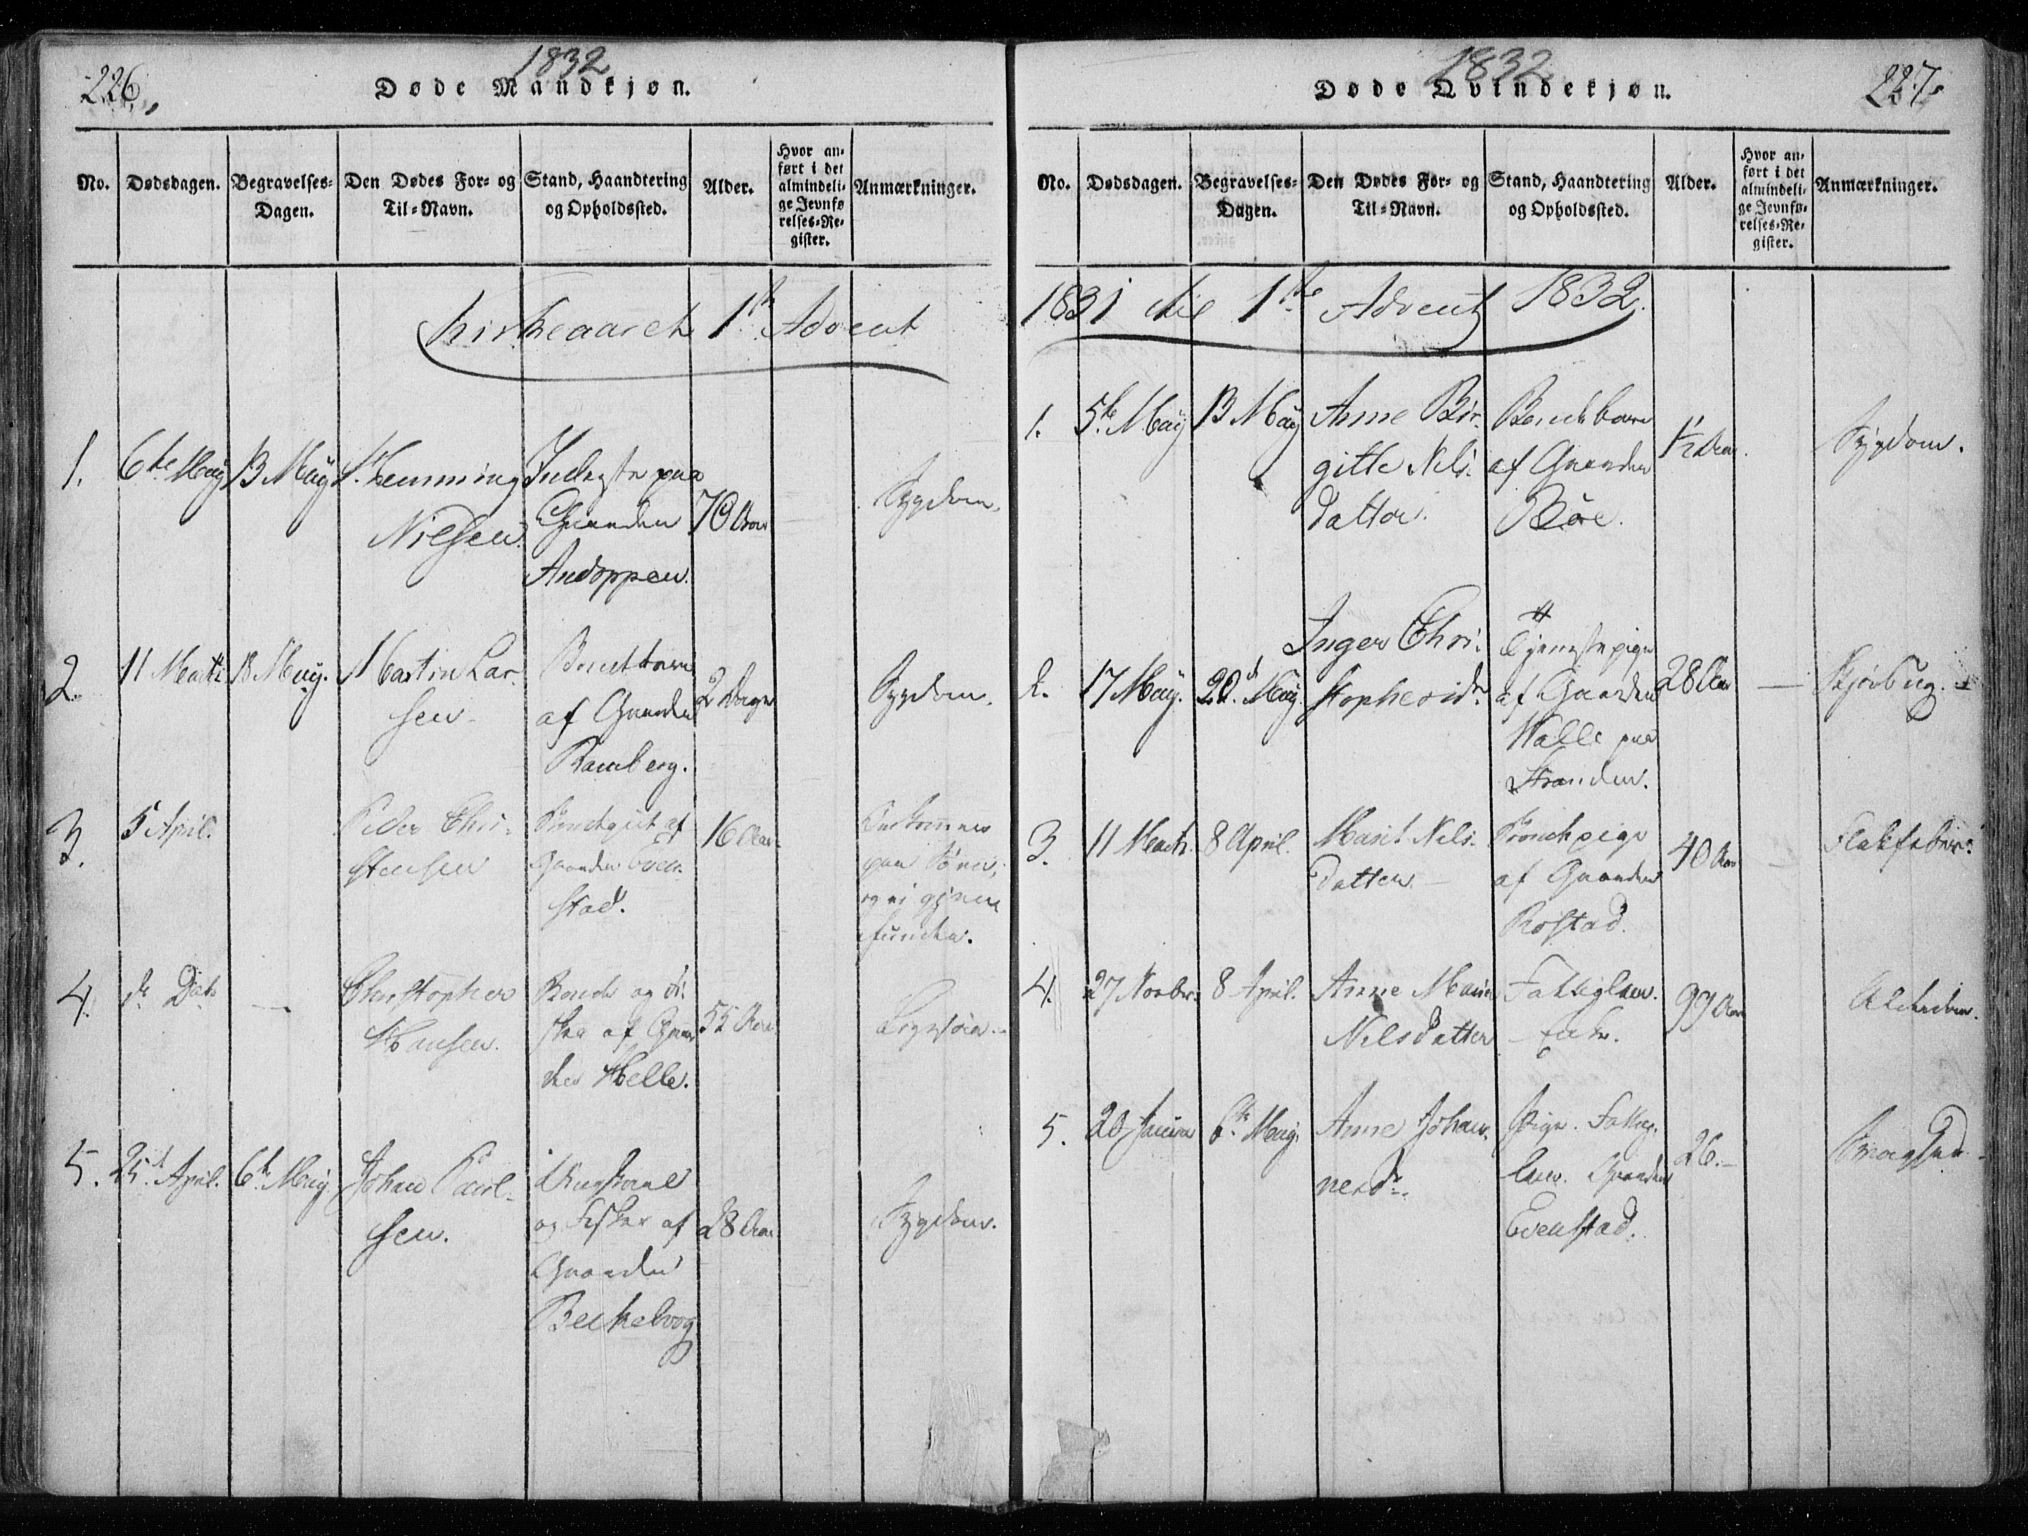 226.
1832
Døde Mandkjøn.
No.
Dødsdagen.
Begravelses-
Dagen.
Den Dødes For- og
Til-Navn.
Stand, Haandtering
og Opholdssted.
Alder.
Hvor an-
ført i det
almindeli-
ge Jevnfø
relses-Re-
gister.
Anmærkninger.
Kirkeaaret 1ste Advent
1.
6te May
13 May
Hemming
Nielsen.
Inderste paa
Gaarden
Andoppen.
70 Aar
Sygdom.
2.
11 Marti
18 May.
Martin Lar-
sen
af Gaarden
Ramberg.
2 Dage
Sygdom.
3.
5 April.
Peder Chri-
stensen
af
Gaarden Even-
stad.
16 Aar.
Omkommen
paa Søen,
og ei gjen
funden.
4.
d. Dato
Christopher
Hansen.
Bonde og Fi-
sker af Gaar
den Helle.
55 Aar
Ligesaa.
5.
25d April.
6te May
Johan Paul-
sen.
Ungkarl
og Fisker af
Gaarden
28 Aar.
Sygdom.
1832
Døde Qvindekjøn.
227.
No.
Dødsdagen.
Begravelses-
Dagen.
Den Dødes For- og
Til-Navn.
Stand, Haandtering
og Opholdssted.
Alder.
Hvor an-
ført i det
almindeli-
ge Jevnfø-
relses-Re-
gister.
Anmærkninger.
1831 til 1ste Advent 1832.
1.
5te May
13 May
Anne Bir-
gitte Nils-
datter.
Bondebarn
af Gaarden
Böe.
1/2 Aar.
Sygdom.
2.
17 May.
20d May.
Inger Chri-
stophersdr.
Tjenestepige
af Gaarden
Walle paa
Stranden.
28 Aar
Skjörbug.
3.
11 Marti.
8 April.
Marit Nils-
datter.
af Gaarden
Rostad.
40 Aar
Flekfeber.
4.
27 Novbr.
8 April.
Anne Marie
Nilsdatter
Fattiglem.
Enke.
99 Aar
Alderdom.
5.
20 Januar
6te May.
Anne Johan-
nesdr.
Pige. Fattig-
lem. Gaarden
Evenstad.
26.